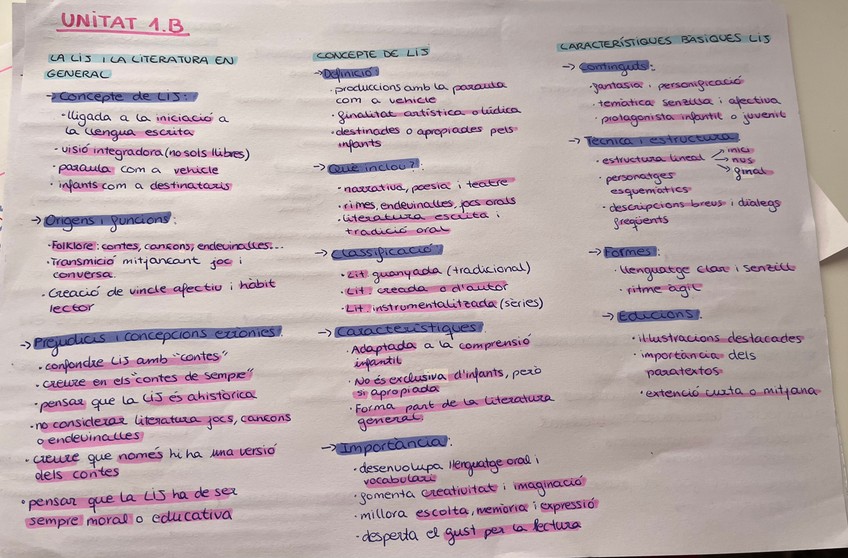 UNITAT 1.B
LA LIJ I LA LITERATURA EN
GENERAL
→ Concepte de LIJ:
· lligada a la iniciació a
la llengua escrita
· visió integradora (no sols llibres)
· paraula com a vehicle
· infants com a destinataris
→ Orígens i funcions:
· Folklore: contes, cançons, endevinalles...
· Transmició mitjançant joc i
conversa.
· Creació de vincle afectiu i hàbit
lector
→ Prejudicis i concepcions errònies:
· confondre LIJ amb "contes"
· creure en els "contes de sempre"
· pensar que la LIJ és ahistòrica
· no considerar literatura jocs, cançons
o endevinalles
· creure que només hi ha una versió
dels contes
· pensar que la LIJ ha de ser
sempre moral o educativa
CONCEPTE DE LIJ
→ Definició:
· produccions amb la paraula
com a vehicle
· finalitat artística o lúdica
· destinades o apropiades pels
infants
→ Què inclou?:
· narrativa, poesia i teatre
· rimes, endevinalles, jocs orals
· literatura escrita i
tradició oral
→ Classificació
· Lit guanyada (tradicional)
· Lit. creada o d'autor
· Lit. instrumentalitzada (sèries)
→ Característiques
· Adaptada a la comprensió
infantil
· No és exclusiva d'infants, però
sí apropiada
· Forma part de la literatura
general
→ Importància:
· desenvolupa llenguatge oral i
vocabulari
· fomenta creativitat i imaginació
· millora escolta, memòria i expressió
· desperta el gust per la lectura
CARACTERÍSTIQUES BÀSIQUES LIJ
→ Continguts:
· fantasia · personificació
· temàtica senzilla i afectiva
· protagonista infantil o juvenil
→ Tècnica i estructura:
· estructura lineal → inici
→ nus
→ final
· personatges
esquemàtics
· descripcions breus i diàlegs
freqüents
→ Formes:
· llenguatge clar i senzill
· ritme àgil
→ Edicions:
· il·lustracions destacades
· importància dels
paratextos
· extenció curta o mitjana